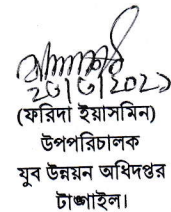 ২৩/৩/২০২১
(ফরিদা ইয়াসমিন)
উপপরিচালক
যুব উন্নয়ন অধিদপ্তর
টাঙ্গাইল।